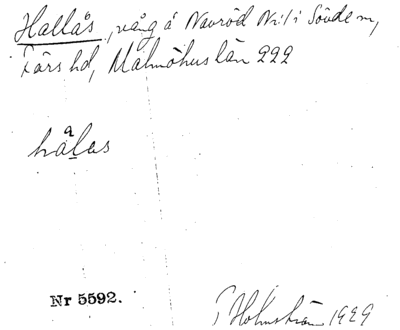 Hallås, vång å Navröd Nr 1 i Sövde sn,
Färs hd, Malmöhus län 222
hålas
Nr 5592.
Holmström 1929